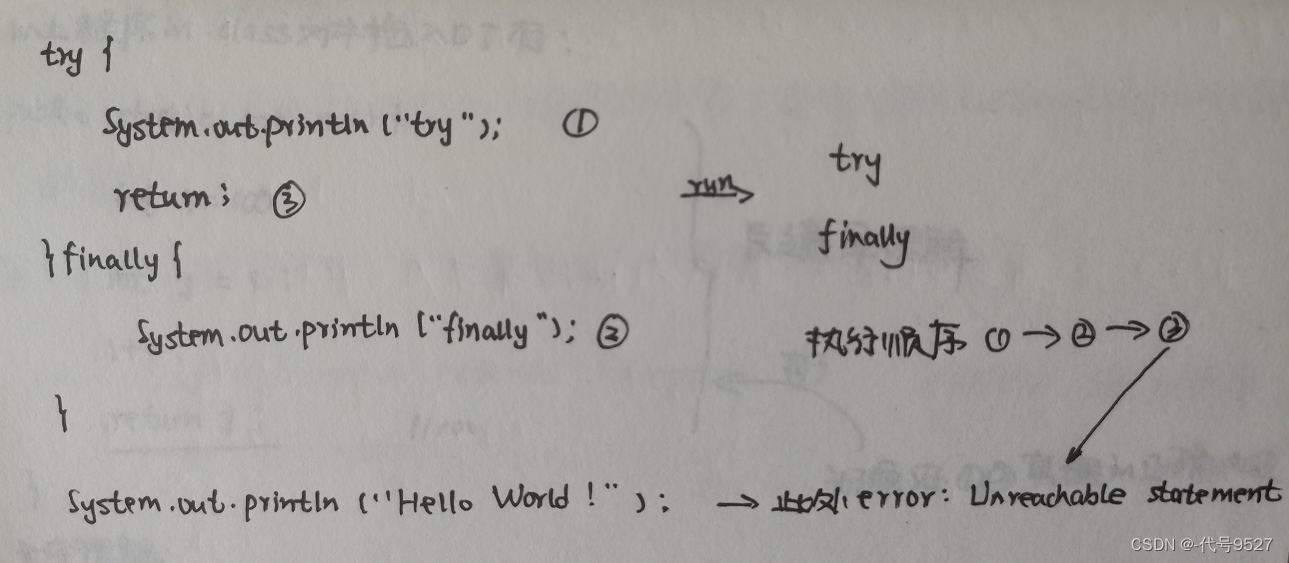 try {
System.out.println ("try"); ①
return; ③
} finally {
System.out.println ("finally"); ②
}
System.out.println ("Hello World!"); → 此处error: Unreachable statement
run
try
finally
执行顺序 ① → ② → ③
CSDN @-代号9527